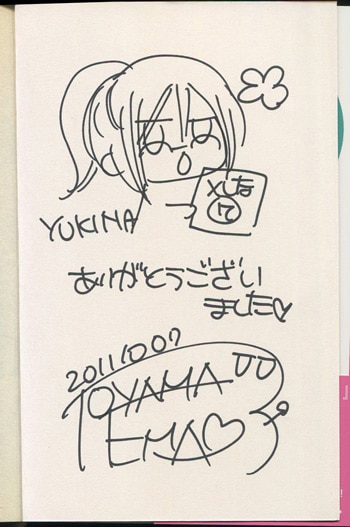 メしたね
⑰
YUKINA
ありがとうござい
ました♡
20111007
TOYAMA
EMA♡